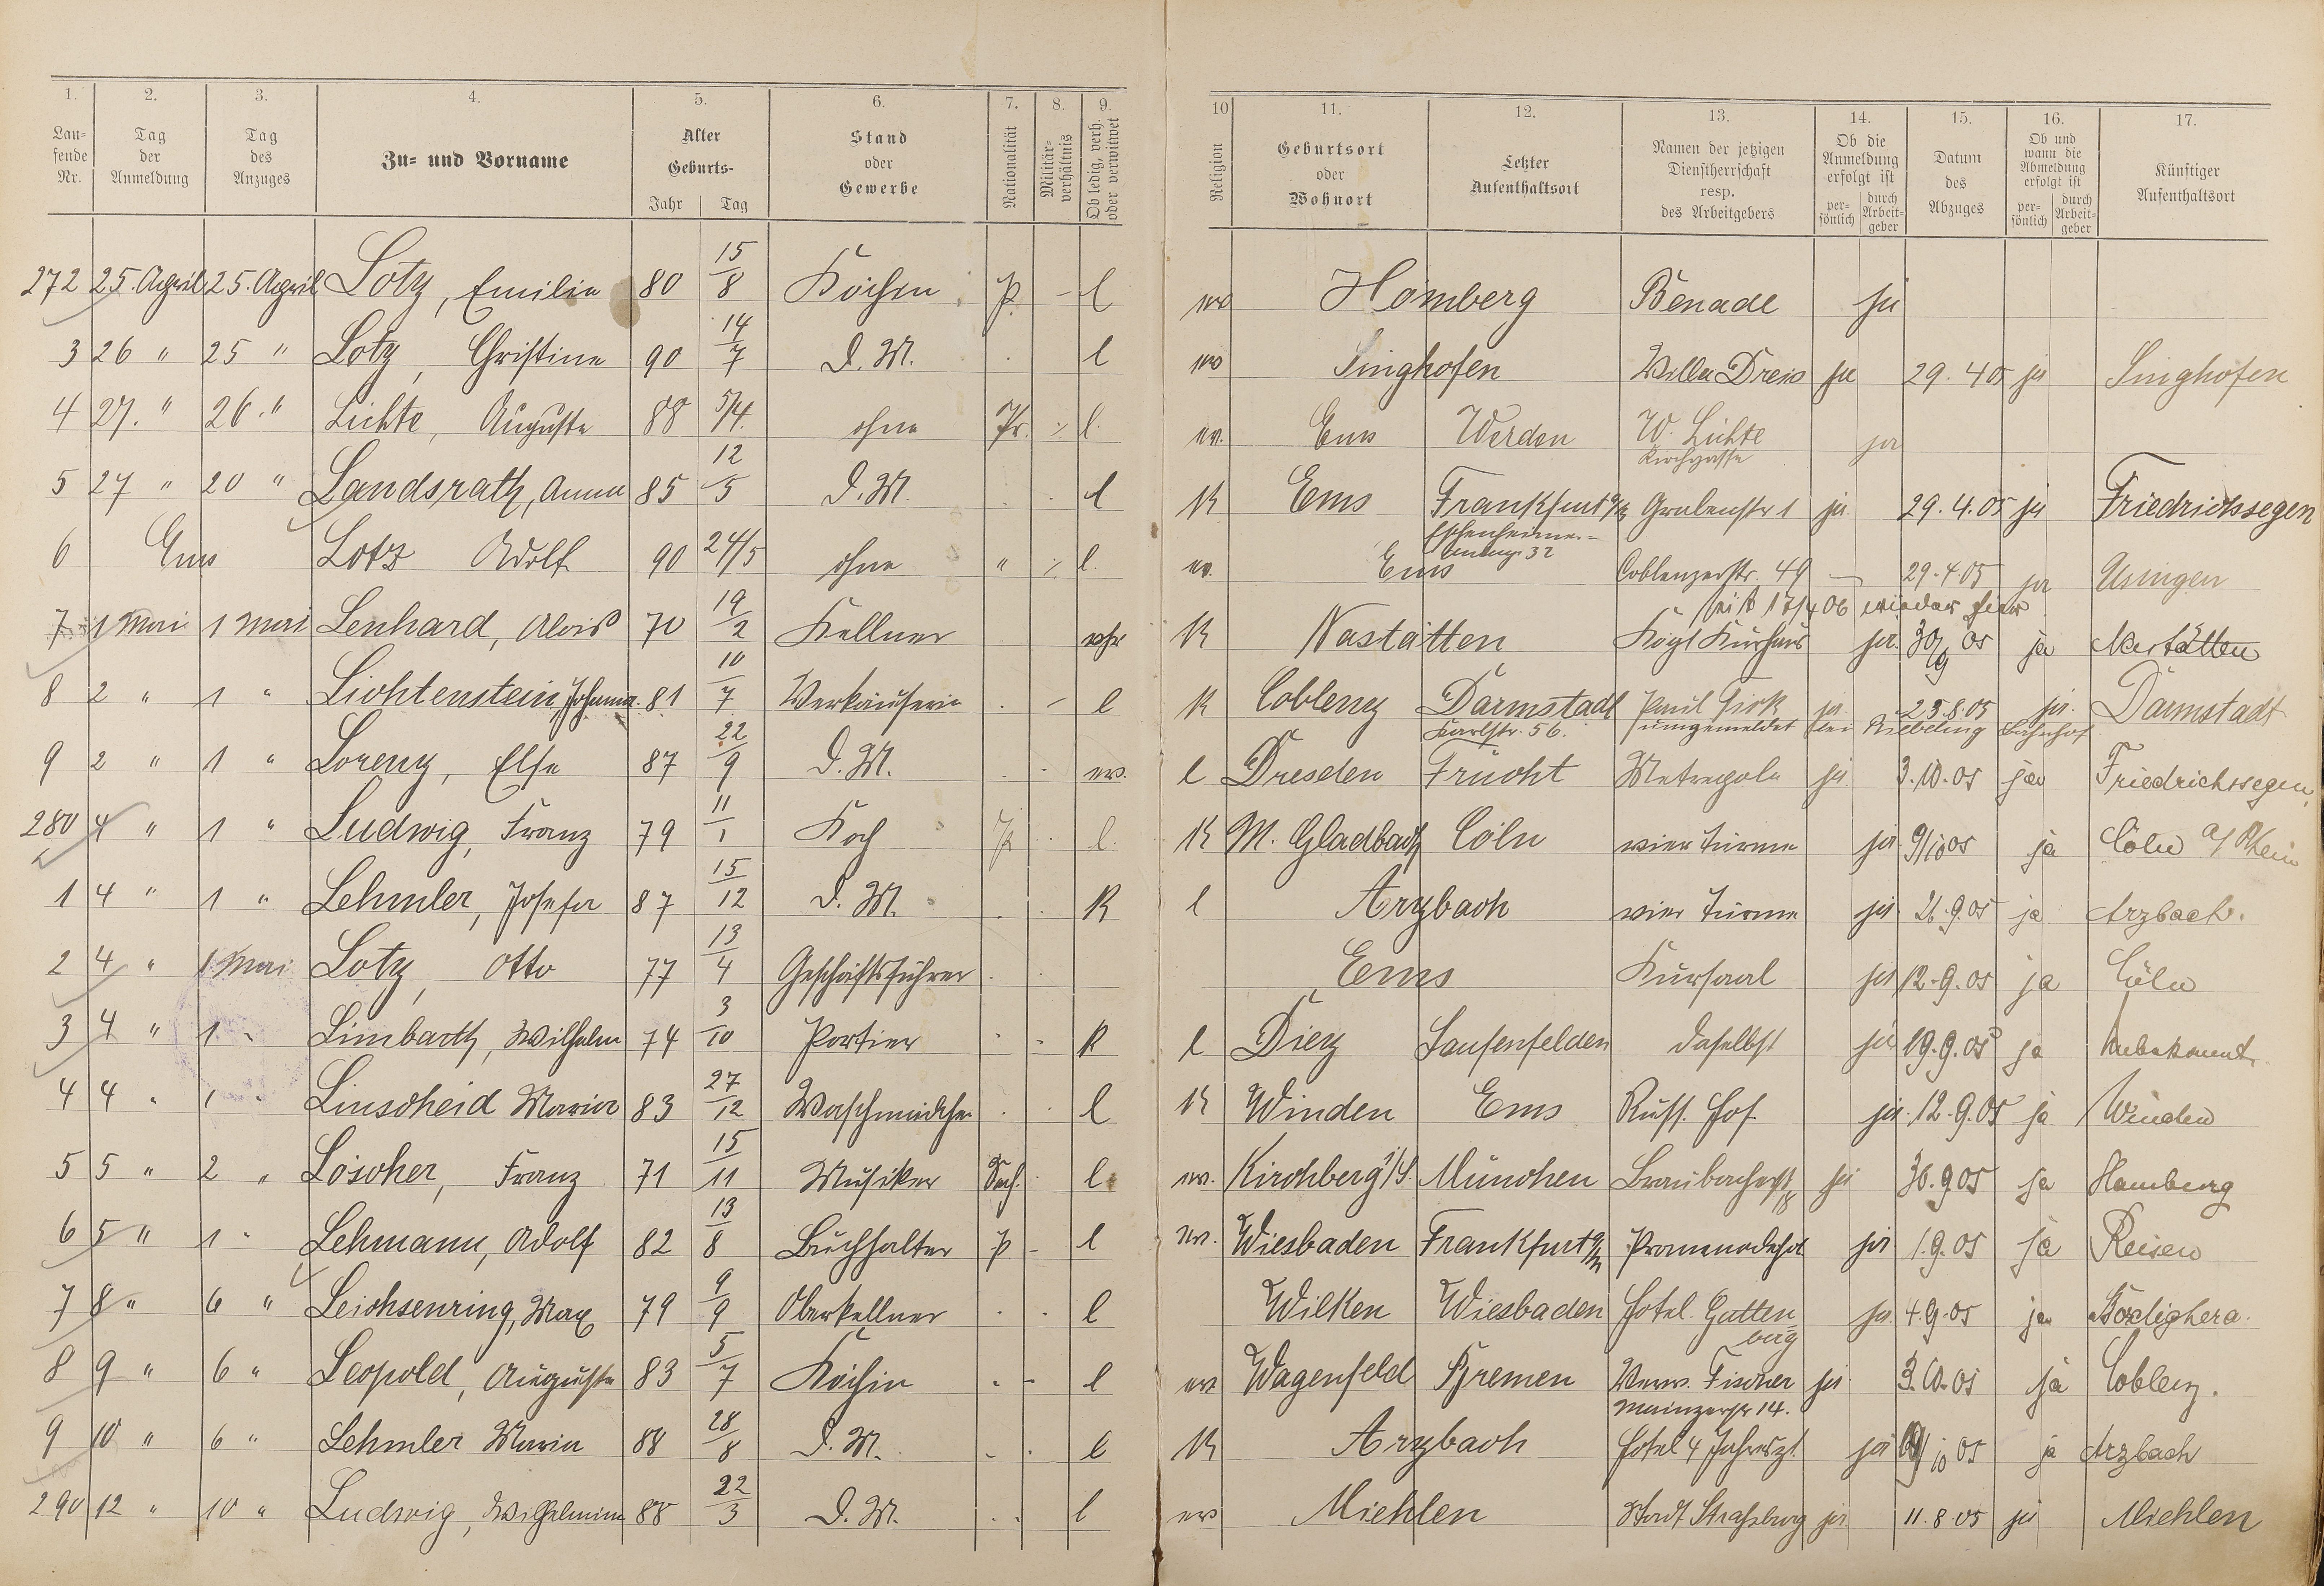 1. 2. 3. 4. 5. 6. 7. 8. 9. 10 11. 12. 13. 14. 15. 16. 17.
Lau-fende Nr. Tag der Anmeldung Tag des Anzuges Zu- und Vorname Alter Geburts- Jahr Tag Stand oder Gewerbe Nationalität Militär-verhältnis Ob ledig, verh. oder verwitwet Religion Geburtsort oder Wohnort Letzter Aufenthaltsort Namen der jetzigen Dienstherrschaft resp. des Arbeitgebers Ob die Anmeldung erfolgt ist per-sönlich durch Arbeit-geber Datum des Abzuges Ob und wann die Abmeldung erfolgt ist per-sönlich durch Arbeit-geber Künftiger Aufenthaltsort
272 25. April 25. April Lotz, Emilie 80 15/8 Köchin p. - l Homberg Benade ja
3 26 " 25 " Lotz, Christine 90 14/7 D. M. l Singhofen Villa Dreis ja 29. 4 05 ja Singhofen
4 27. " 26. " Lichte, Auguste 88 5/4. ohne Pr. ./. l. ev. Ems Werden W. Lichte Kirchgasse ja
5 27 " 20 " Landsrath, Anna 85 12/5 D. M. l K Ems Frankfurt a/M Grabenstr 1 ja 29. 4. 05 ja Friedrichssegen
Eschenheimer- 32
6 Ems Lotz Adolf 90 24/5 ohne " ./. l. ev. Ems Coblenzerstr. 49 — 29. 4. 05 ja Usingen
seit 17/4 06 wieder hier
7 1 Mai 1 Mai Lenhard, Alois 70 19/2 Kellner K Nastätten Kögl Kurhaus ja. 30/9 05 ja Nastätten
8 2 " 1 " Lichtenstein, Johanna. 81 10/7 Verkäuferin - l K Coblenz Darmstadt Karlstr. 56. Paul ja 25. 8. 05 ja. Darmstadt
umgemeldet bei Niebeling Bahnhof
9 2 " 1 " Lorenz, Else 87 22/9 D. M. ev. l Dresden Frücht Metropole ja 3. 10. 05 ja Friedrichssegen,
280 4 " 1 " Ludwig, Franz 79 11/1 Koch p l. K M. Gladbach Cöln vier Türme ja 9/10 05 ja Cöln a/ Rhein
1 4 " 1 " Lehmler, Josefa 87 15/12 D. M. K l Arzbach vier Türme ja 26. 9. 05 ja Arzbach.
2 4 " 1 Mai Lotz, Otto 77 13/4 Geschäftsführer Ems Kursaal ja 12. 9. 05 ja Cöln
3 4 " 1 " Limbarth, Wilhelm 74 3/10 Portier K l Diez Laufenfelden daselbst ja 19. 9. 05 ja unbekannt.
4 4 " 1 " Linscheid Maria 83 27/12 Waschmädchen l K Winden Ems Russ. Hof. ja. 12. 9. 05 ja Winden
5 5 " 2 " Löscher, Franz 71 15/11 Musiker Sach. l ev. Kirchberg i/S. München Braubacherstr ja 30. 9 05 ja Hamburg
6 5 " 1 " Lehmann, Adolf 82 13/8 Buchhalter p - l ev. Wiesbaden Frankfurt a/M Promenadehot ja 1. 9. 05 ja Reisen
7 8 " 6 " Leichsenring, Max 79 9/9 Oberkellner l Wilken Wiesbaden Hotel Gutten-berg ja. 4. 9. 05 ja Bordighera.
8 9 " 6 " Leopold, Auguste 83 5/7 Köchin l ev Wagenfeld Bremen Verw. Fischer Mainzerstr 14. ja 3. 10. 05 ja Coblenz.
9 10 " 6 " Lehmler Maria 88 28/8 D. M. l K Arzbach Hotel 4 Jahreszt. ja /10 05 ja Arzbach
290 12 " 10 " Ludwig, Wilhelmine 88 22/3 D. M. l ev Miehlen Stadt Strassburg ja 11. 8. 05 ja Miehlen